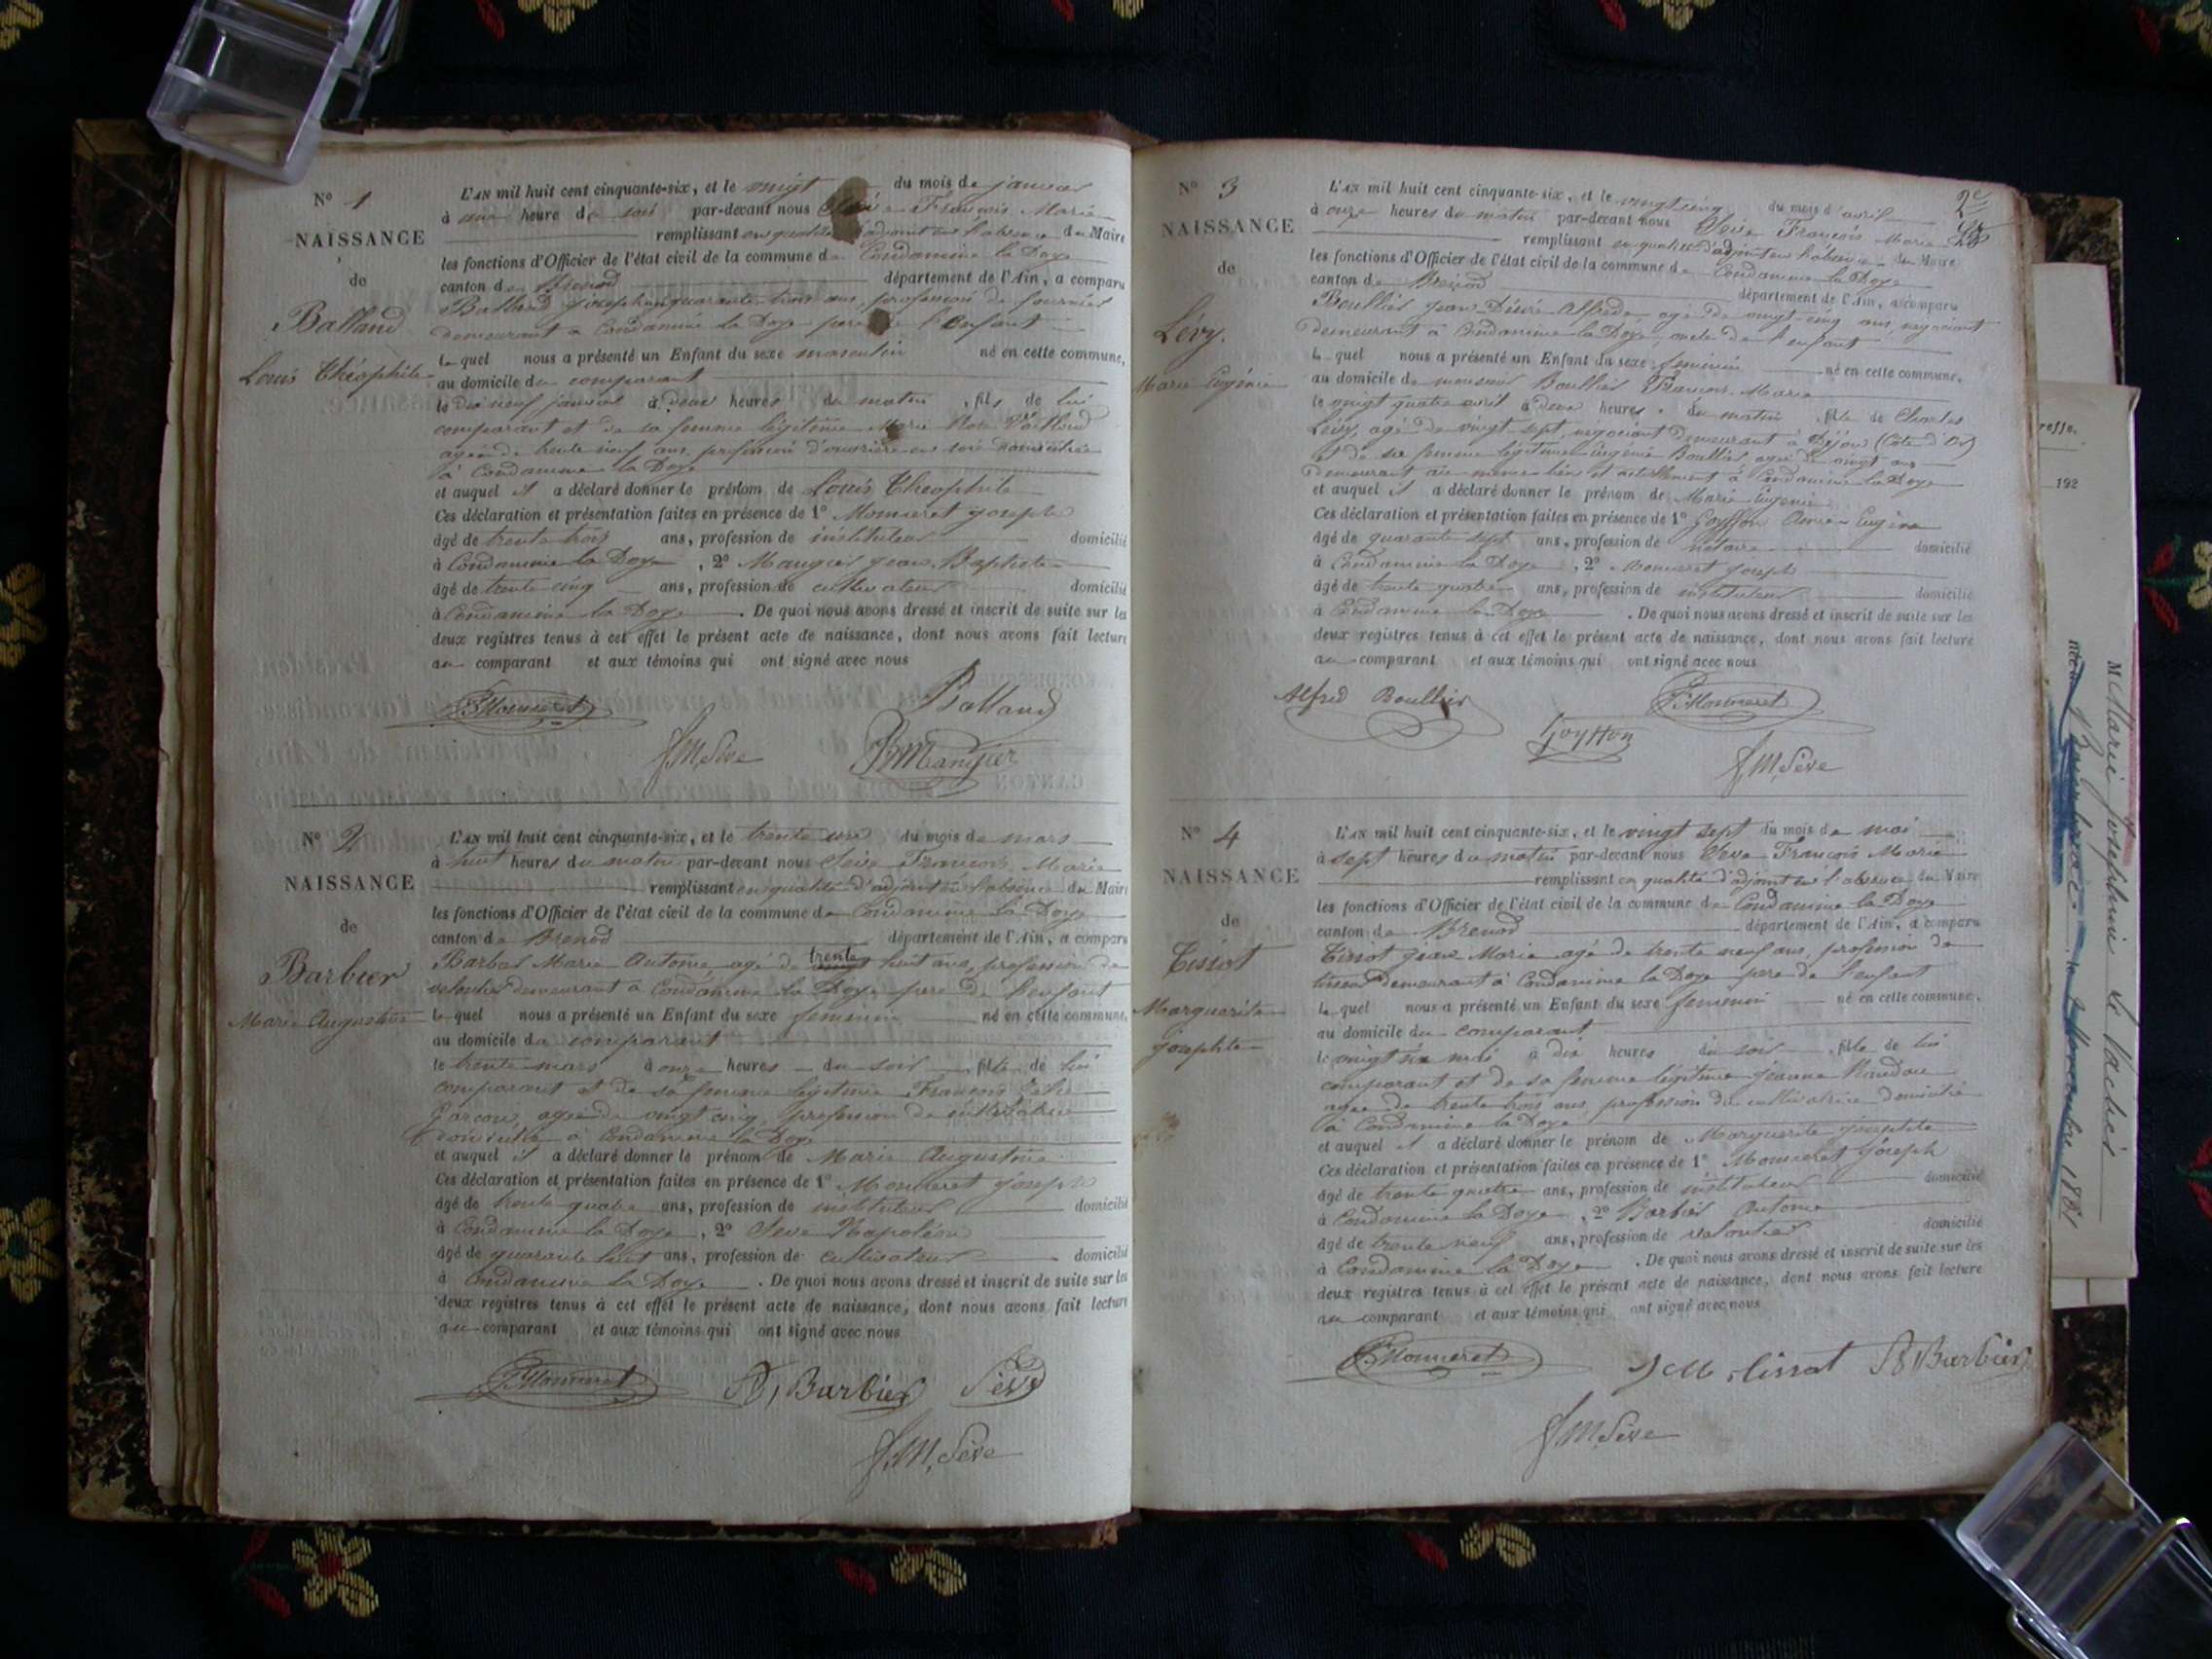 N° 1
NAISSANCE
de
Balland
Louis Théophile
L'AN mil huit cent cinquante-six, et le vingt du mois de janvier
à une heure du soir par-devant nous François Marie
remplissant en qualité d'adjoint en l'absence du Maire
les fonctions d'Officier de l'état civil de la commune de Condamine la Doye
canton de Brenod département de l'Ain, a comparu
Balland Joseph quarante trois ans, profession de fournier
demeurant à Condamine la Doye pere de l'enfant
Lequel nous a présenté un Enfant du sexe masculin né en cette commune,
au domicile du comparant
le dix neuf janvier à deux heures du matin, fils de lui
comparant et de sa femme légitime Marie Rose
agée de trente neuf ans, profession d'ouvrière en soie domiciliée
à Condamine la Doye
et auquel il a déclaré donner le prénom de Louis Théophile
Ces déclaration et présentation faites en présence de 1° Monneret Joseph
âgé de trente trois ans, profession de instituteur domicilié
à Condamine la Doye, 2° Mangier Jean Baptiste
âgé de trente cinq ans, profession de cultivateur domicilié
à Condamine la Doye. De quoi nous avons dressé et inscrit de suite sur les
deux registres tenus à cet effet le présent acte de naissance, dont nous avons fait lecture
au comparant et aux témoins qui ont signé avec nous
Monneret Balland
F.M. Sève BMangier
N° 2
NAISSANCE
de
Barbier
Marie Augustine
L'AN mil huit cent cinquante-six, et le trente un du mois de mars
à huit heures du matin par-devant nous Seve François Marie
remplissant en qualité d'adjoint en l'absence du Maire
les fonctions d'Officier de l'état civil de la commune de Condamine la Doye
canton de Brenod département de l'Ain, a comparu
Marie Antoine agé de trente huit ans, profession de
veloutier demeurant à Condamine la Doye pere de l'enfant
Lequel nous a présenté un Enfant du sexe feminin né en cette commune,
au domicile du comparant
le trente mars à onze heures du soir, fille de lui
comparant et de sa femme légitime
agée de vingt cinq, profession de cultivatrice
domiciliée à Condamine la Doye
et auquel il a déclaré donner le prénom de Marie Augustine
Ces déclaration et présentation faites en présence de 1° Monneret Joseph
âgé de trente quatre ans, profession de instituteur domicilié
à Condamine la Doye, 2° Seve Napoléon
âgé de quarante huit ans, profession de cultivateur domicilié
à Condamine la Doye. De quoi nous avons dressé et inscrit de suite sur les
deux registres tenus à cet effet le présent acte de naissance, dont nous avons fait lecture
au comparant et aux témoins qui ont signé avec nous
Monneret Barbier Sève
F.M. Sève
2e
N° 3
NAISSANCE
de
Lévy.
Marie Eugénie
L'AN mil huit cent cinquante-six, et le vingt cinq du mois d'avril
à onze heures du matin par-devant nous Seive François Marie
remplissant en qualité d'adjoint en l'absence du Maire
les fonctions d'Officier de l'état civil de la commune de Condamine la Doye
canton de Brenod département de l'Ain, a comparu
Boullier Jean Désiré Alfred agé de vingt-cinq ans, negociant
demeurant à Condamine la Doye oncle de l'enfant
Lequel nous a présenté un Enfant du sexe feminin né en cette commune,
au domicile de monsieur Boullier François Marie
le vingt quatre avril à deux heures du matin, fille de Charles
Lévy, agé de vingt sept, negociant demeurant à Dijon (Côte d'Or)
et de sa femme légitime Eugénie Boullier agée de vingt ans
demeurant au même lieu et actuellement à Condamine la Doye
et auquel il a déclaré donner le prénom de Marie Eugénie
Ces déclaration et présentation faites en présence de 1° Goyffon Eugène
âgé de quarante sept ans, profession de notaire domicilié
à Condamine la Doye, 2° Monneret Joseph
âgé de trente quatre ans, profession de instituteur domicilié
à Condamine la Doye. De quoi nous avons dressé et inscrit de suite sur les
deux registres tenus à cet effet le présent acte de naissance, dont nous avons fait lecture
au comparant et aux témoins qui ont signé avec nous
Alfred Boullier Monneret
Goyffon
F.M. Sève
N° 4
NAISSANCE
de
Tissot
Marguerite
Josephte
L'AN mil huit cent cinquante-six, et le vingt sept du mois de mai
à sept heures du matin par-devant nous Seve François Marie
remplissant en qualité d'adjoint en l'absence du Maire
les fonctions d'Officier de l'état civil de la commune de Condamine la Doye
canton de Brenod département de l'Ain, a comparu
Tissot Jean Marie agé de trente neuf ans, profession de
demeurant à Condamine la Doye pere de l'enfant
Lequel nous a présenté un Enfant du sexe feminin né en cette commune,
au domicile du comparant
le vingt six mai à dix heures du soir, fille de lui
comparant et de sa femme légitime Jeanne
agée de trente trois ans, profession de cultivatrice domiciliée
à Condamine la Doye
et auquel il a déclaré donner le prénom de Marguerite Josephte
Ces déclaration et présentation faites en présence de 1° Monneret Joseph
âgé de trente quatre ans, profession de instituteur domicilié
à Condamine la Doye, 2° Barbier Antoine
âgé de trente neuf ans, profession de veloutier domicilié
à Condamine la Doye. De quoi nous avons dressé et inscrit de suite sur les
deux registres tenus à cet effet le présent acte de naissance, dont nous avons fait lecture
au comparant et aux témoins qui ont signé avec nous
Monneret JM tissot Barbier
F.M. Sève
192
M Marie Joséphine
Novembre 1881